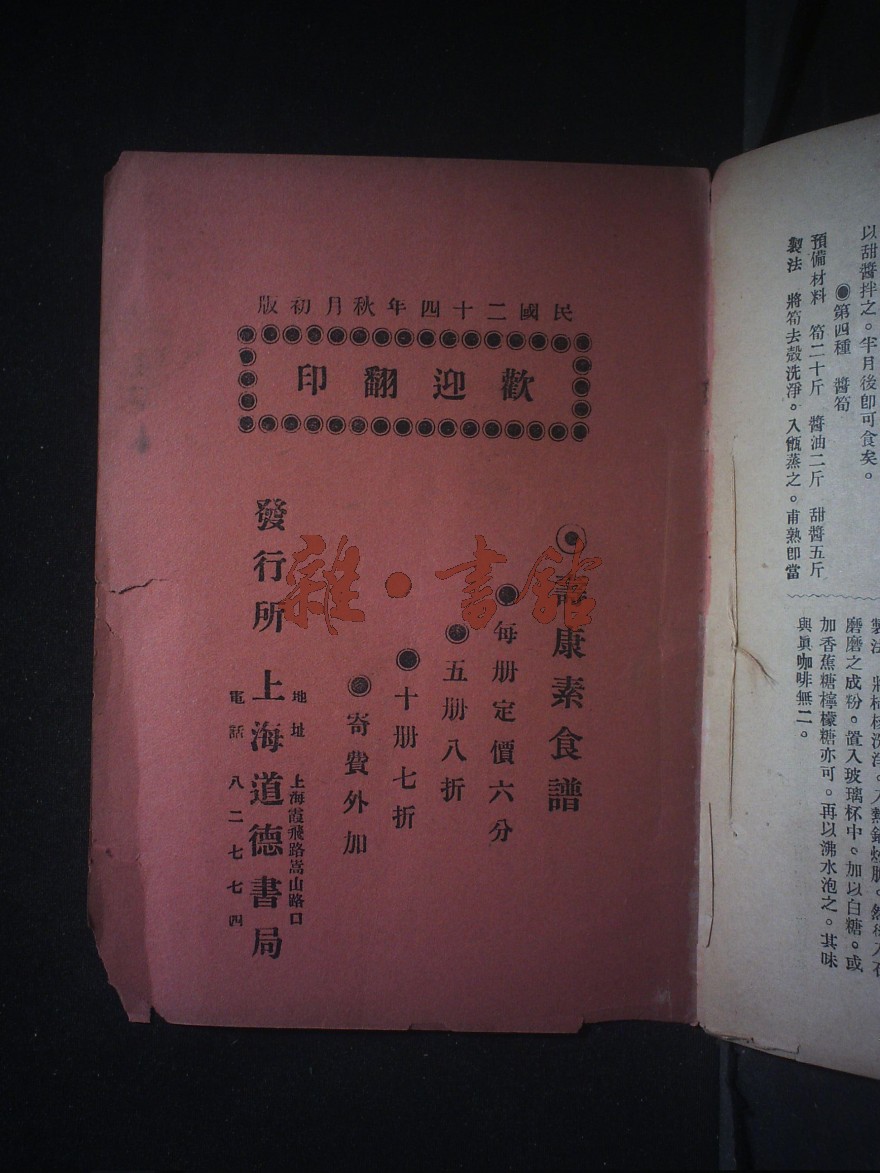 以甜醬拌之。半月後卽可食矣。
◉第四種　醬筍
預備材料　筍二十斤　醬油二斤　甜醬五斤
製法　將筍去殼洗淨。入甑蒸之。甫熟卽當
磨磨之成粉。置入玻璃杯中。加以白糖。或
加香蕉糖檸檬糖亦可。再以沸水泡之。其味
與眞咖啡無二。
民國二十四年秋月初版
歡迎翻印
◉壽康素食譜
◉每册定價六分
◉五册八折
◉十册七折
◉寄費外加
地址　上海霞飛路嵩山路口
發行所　上海道德書局
電話　八二七七四
雜·書館